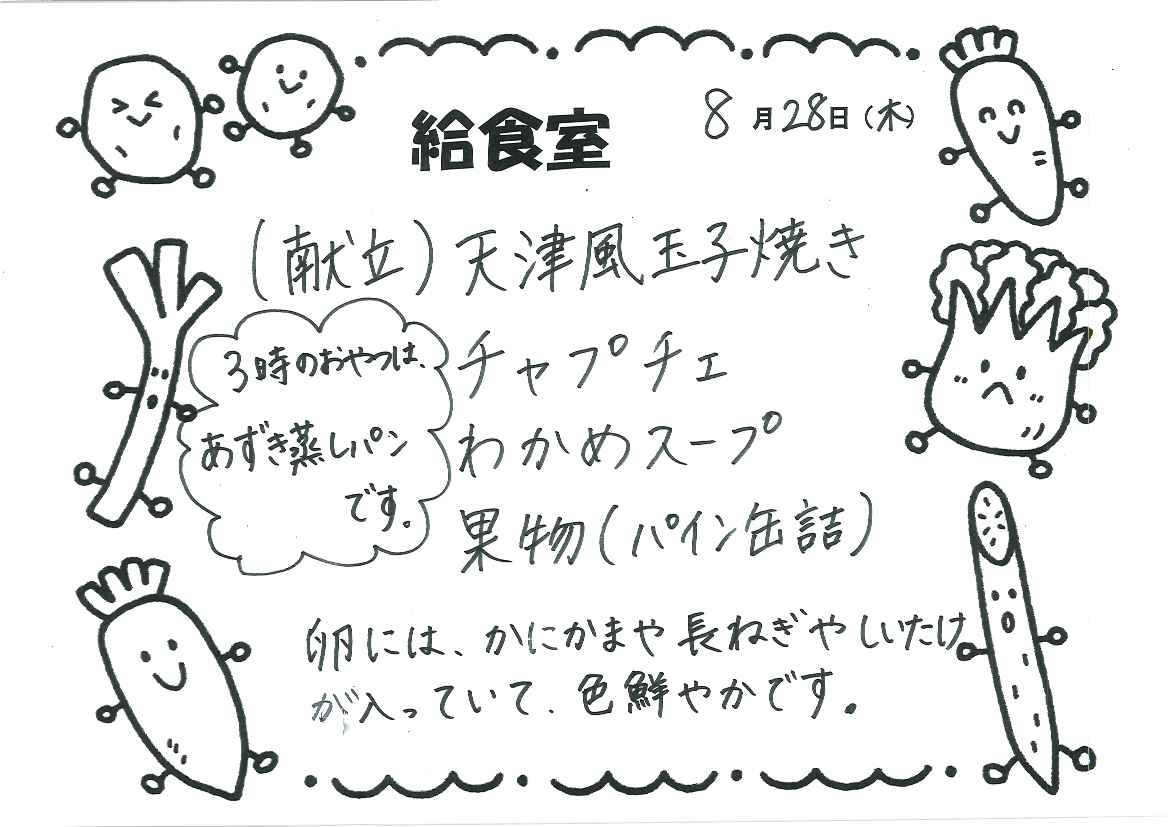 給食室
8月28日(木)
(献立)天津風玉子焼き
チャプチェ
わかめスープ
果物(パイン缶詰)
3時のおやつは、
あずき蒸しパン
です。
卵には、かにかまや長ねぎやしいたけ
が入っていて、色鮮やかです。